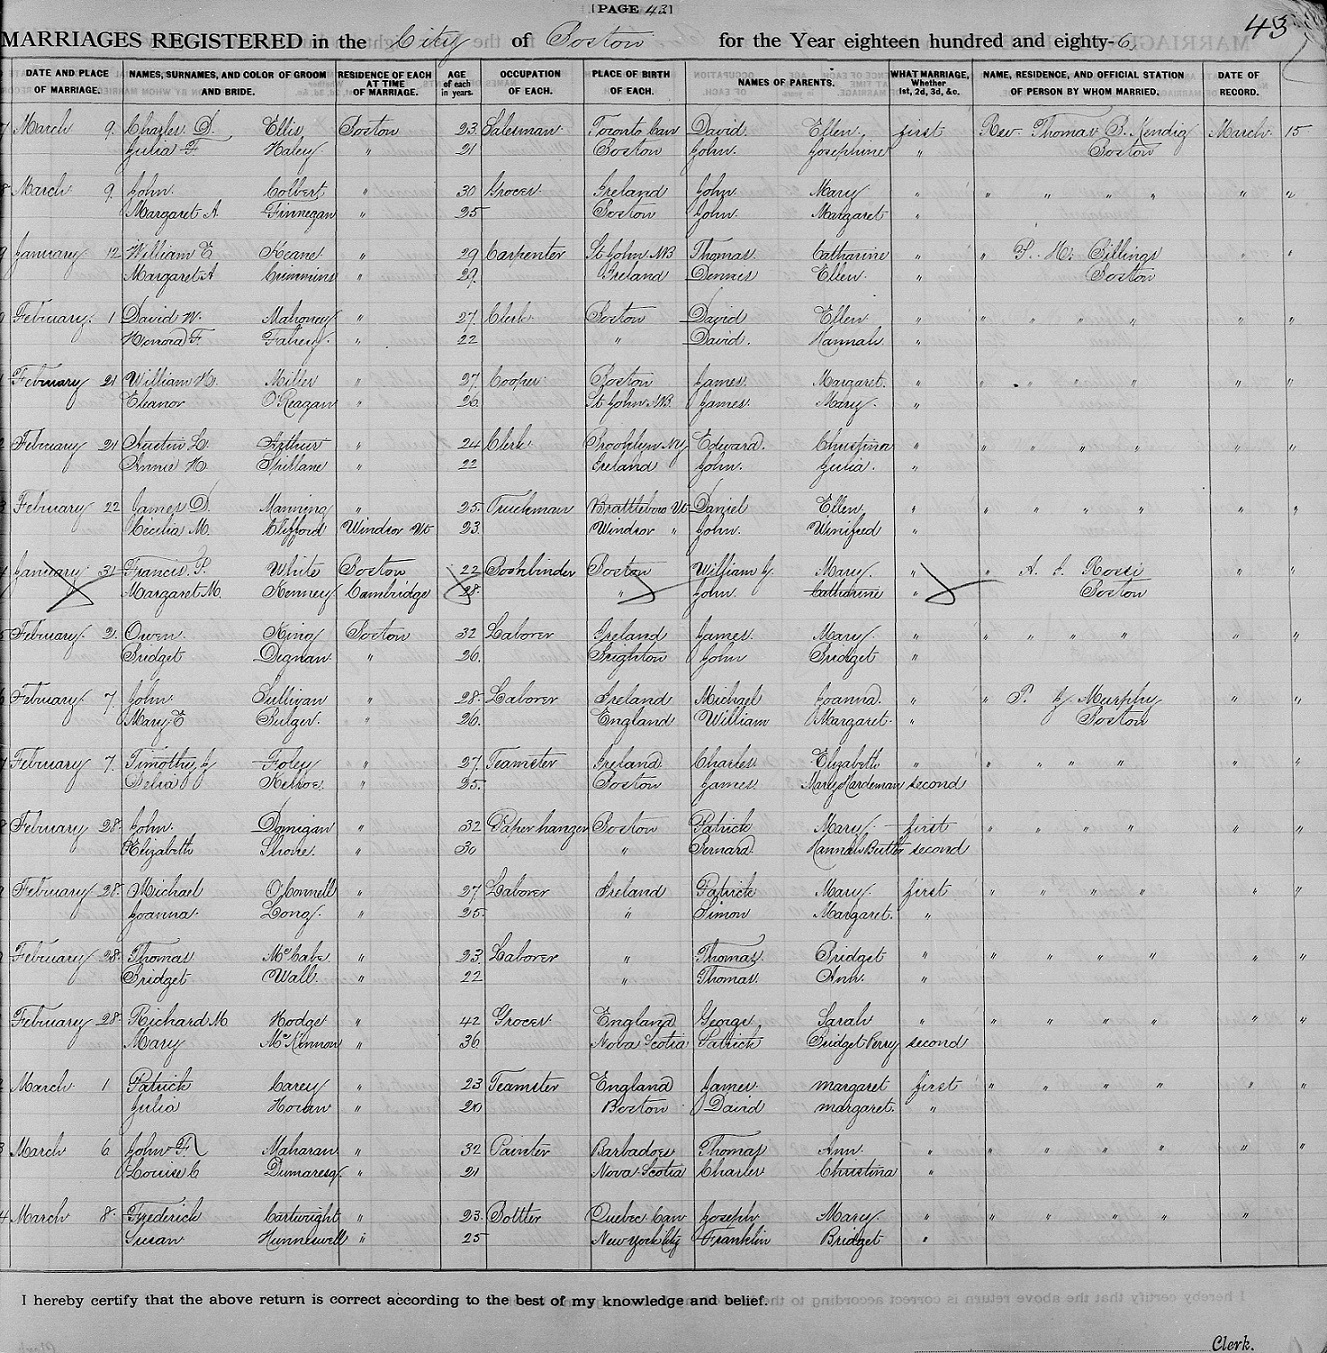 [PAGE 43]
43
MARRIAGES REGISTERED in the City of Boston for the Year eighteen hundred and eighty-6
DATE AND PLACE OF MARRIAGE. NAMES, SURNAMES, AND COLOR OF GROOM AND BRIDE. RESIDENCE OF EACH AT TIME OF MARRIAGE. AGE of each in years. OCCUPATION OF EACH. PLACE OF BIRTH OF EACH. NAMES OF PARENTS. WHAT MARRIAGE, Whether 1st, 2d, 3d, &c. NAME, RESIDENCE, AND OFFICIAL STATION OF PERSON BY WHOM MARRIED. DATE OF RECORD.
7 March 9. Charles D. Ellis Boston 23. Salesman Toronto Can David Ellen first Rev. Thomas B. Kendig March 15
Julia F Haley " 21 Boston John. Josephine " Boston
8 March 9. John. Colbert " 30 Grocer Ireland John Mary " " " " " " "
Margaret A Finnegan " 25 Boston John. Margaret "
9 January 12 William E Keane " 29 Carpenter St John NB Thomas Catharine " " P. H. Billings " "
Margaret A Crimmins " 29. Ireland Dennes Ellen " Boston
February. 1 David W. Mahoney " 27. Clerk Boston David Ellen " " " " " " "
Honora F. Fahey " 22 " David. Hannah "
February 21 William H. Miller " 27. Cooper Boston James. Margaret. " " " " " " "
Eleanor O'Reagan " 26. St John NB. James. Mary. "
2 February 21 Austin L. Arthur " 24 Clerk Brooklyn NY Edward. Christina " " " " " " "
Annie H. Spillane " 22 Ireland John. Julia. "
3 February 22 James D. Manning " 25. Truckman Brattleboro Vt Daniel Ellen " " " " " " "
Cecilia M. Clifford Windsor Vt 23. Windsor " John. Winifred "
4 January 31 Francis. P. White Boston 22 Bookbinder Boston William J. Mary. " " A. S. Rossi " "
Margaret M. Kenney Cambridge 28. " John Catharine " Boston
5 February. 21. Owen. King Boston 32 Laborer Ireland James Mary. " " " " " " "
Bridget Dignan " 26. Brighton John Bridget "
6 February 7. John. Sullivan " 28. Laborer Ireland Michael Joanna. " " P. J. Murphy " "
Mary E Bulger " 26. England William Margaret. " Boston
7 February 7. Timothy J Foley " 27 Teamster Ireland Charles Elizabeth " " " " " " "
Delia Kehoe. " 25. Boston James Mary Hardeman second
8 February 28. John. Donigan " 32 Paper hanger Boston Patrick Mary. first " " " " " "
Elizabeth Shone. " 30 " Bernard. Hannah Butler second
9 February 28. Michael O'Connell " 27. Laborer Ireland Patrick Mary. first " " " " " "
Joanna. Long. " 25. " Simon Margaret. "
February 28. Thomas McCabe " 23. Laborer " Thomas Bridget " " " " " " "
Bridget Wall. " 22 " Thomas. Ann. "
February 28. Richard M. Hodge " 42 Grocer England George. Sarah " " " " " " "
Mary McKinnon " 36 Nova Scotia Patrick Bridget Perry second
2 March 1 Patrick Carey " 23 Teamster England James. margaret first " " " " " "
Julia Horan " 20 Boston David margaret. "
3 March 6 John F. Maharan " 32 Painter Barbadoes Thomas Ann. " " " " " " "
Louise C Dumaresq. " 21 Nova Scotia Charles Christina "
4 March 8. Frederick Cartwright " 23. Bottler Quebec Can Joseph Mary. " " " " " "
Susan Hunnewell " 25 New York City Franklin Bridget "
I hereby certify that the above return is correct according to the best of my knowledge and belief.
Clerk.